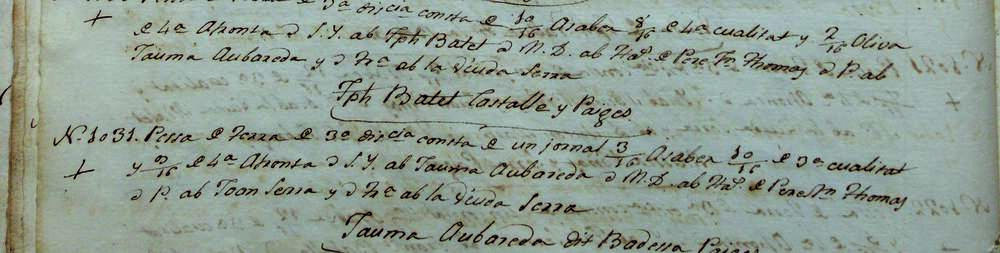 3ª discia consta de 10/16 Asaber 8/16 de 4ª cualitat y 2/16 Oliva
+ de 4ª Afronta d S.Y. ab Jph Batet d M.D. ab Had. de Pere Fn Thomas d P. ab
Jauma Aubareda y d Trª ab la Viuda Serra
Jph Batet Castallé y Paiges
No. 1031. Pessa de Terra de 3ª discia consta de un jornal 3/16 Asaber 10/16 de 3ª cualitat
+ y 9/16 de 4ª Afronta d S.Y. ab Jauma Aubareda d M.D. ab Had. de Pere Fn Thomas
d P. ab Joan Serra y d Trª ab la Viuda Serra
Jauma Aubareda dit Badessa Paiges